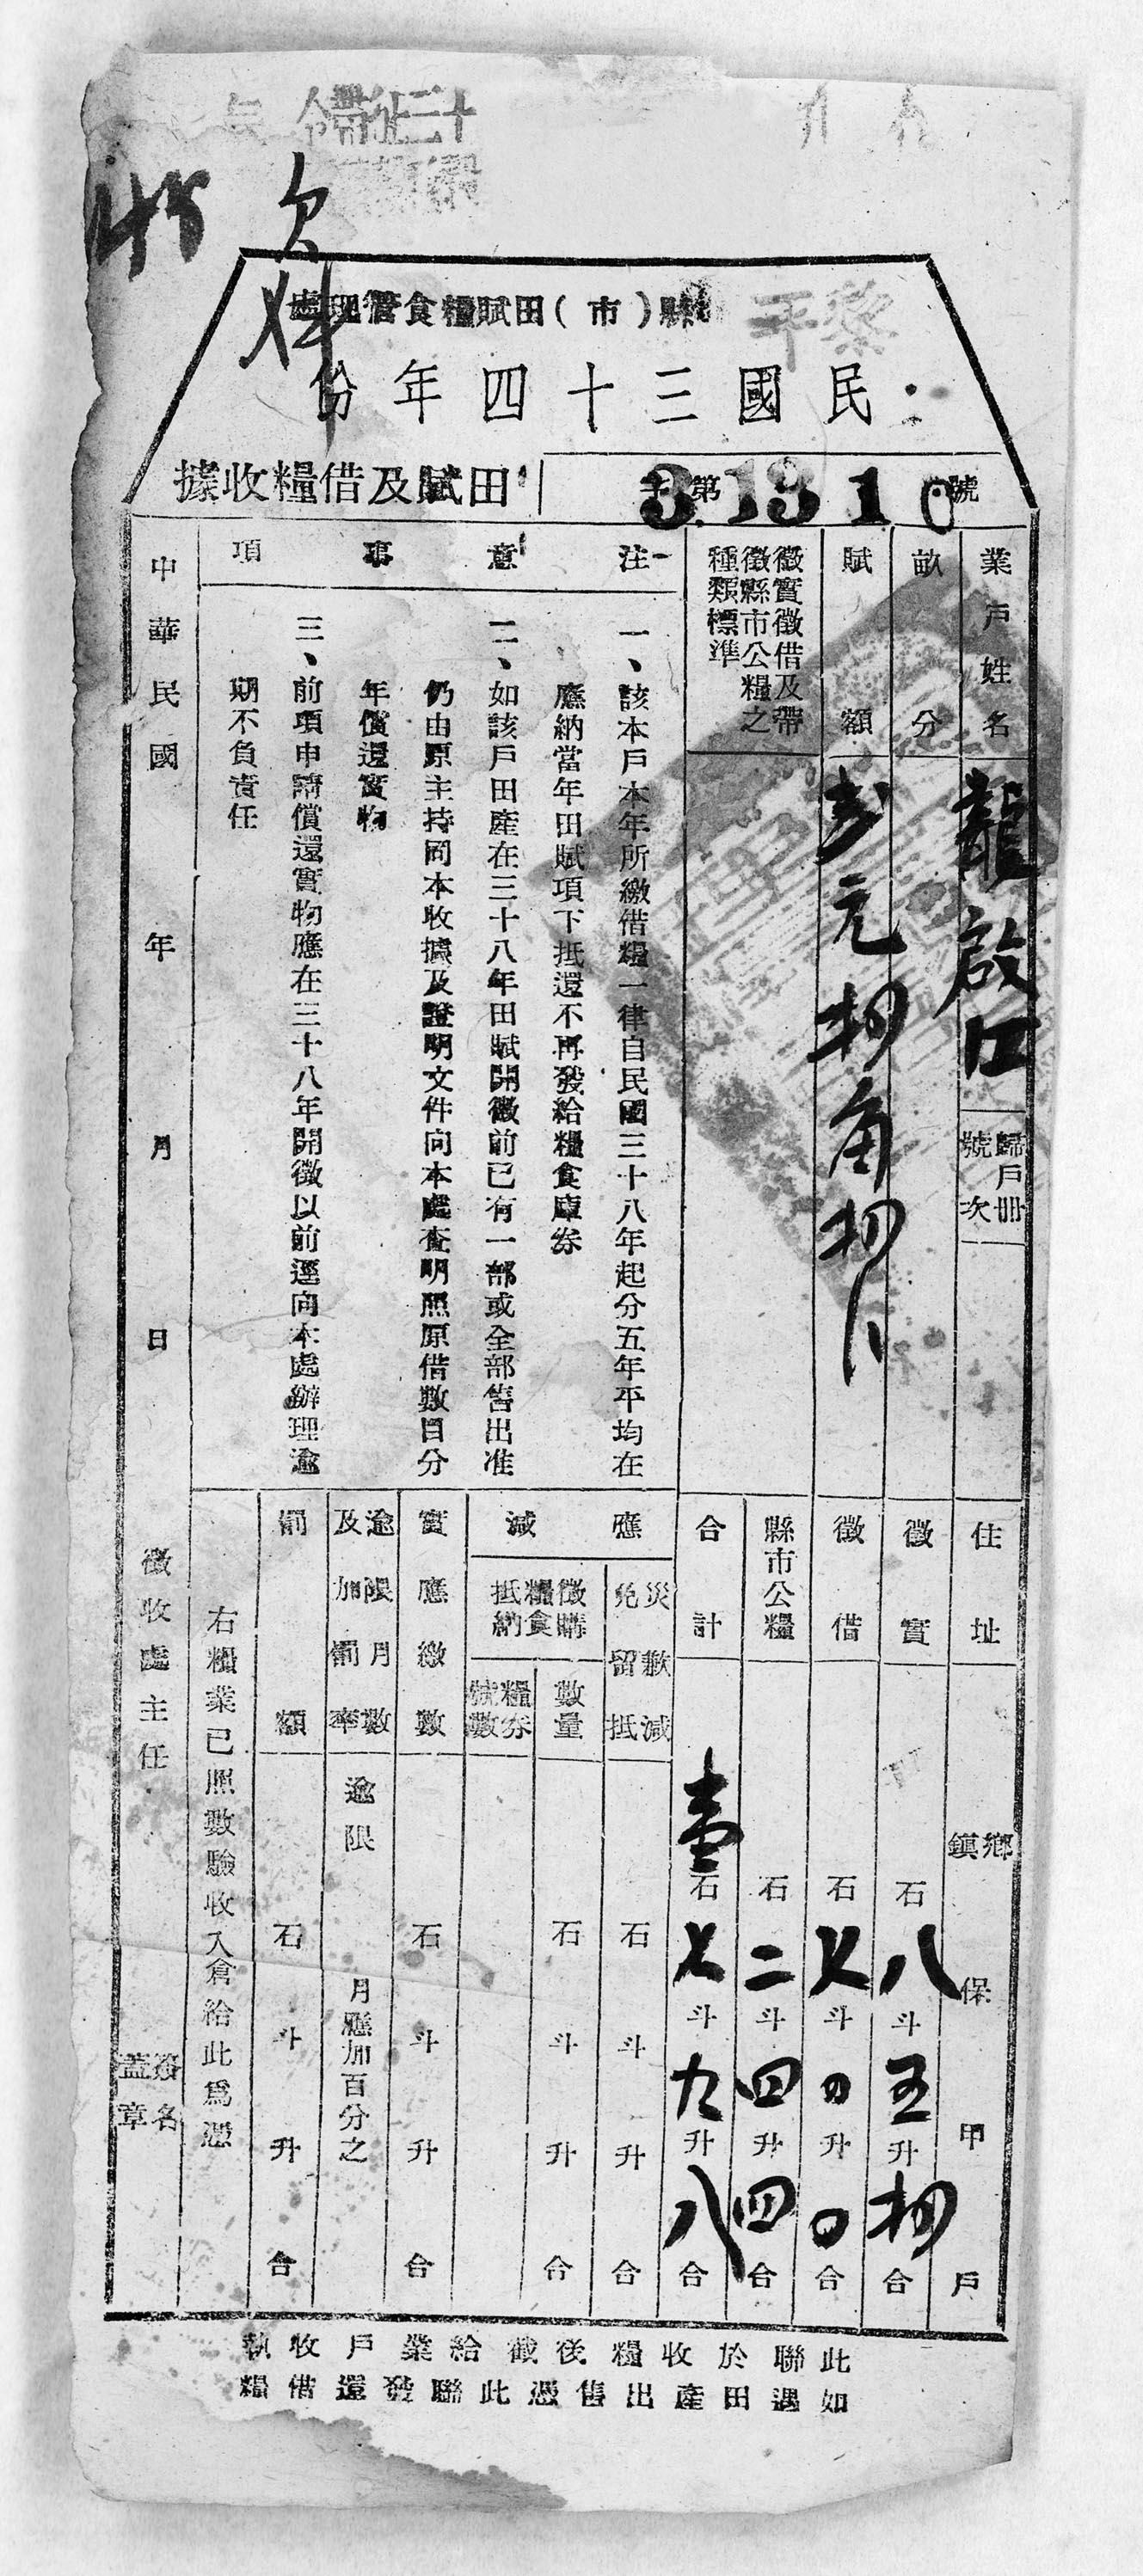 欠
黎平縣（市）田賦糧食管理處
民國三十四年份
田賦及借糧收據
字第 3.1310 號
業戶姓名
龍啟江
歸戶冊號次
畝分
賦額
元 角
徵實徵借及帶徵縣市公糧之種類標準
注意事項
一、該本戶本年所繳借糧一律自民國三十八年起分五年平均在
應納當年田賦項下抵還不再發給糧食庫券
二、如該戶田產在三十八年田賦開徵前已有一部或全部售出准
仍由原主持同本收據及證明文件向本處查明照原借數目分
年償還實物
三、前項申請償還實物應在三十八年開徵以前逕向本處辦理逾
期不負責任
住址
鄉鎮 保 甲 戶
徵實
石八斗五升 合
徵借
石 斗 升 合
縣市公糧
石二斗四升四合
合計
壹石七斗九升八合
應減
災歉減免留抵
石 斗 升 合
徵購糧食抵納
數量
石 斗 升 合
糧券號數
實應繳數
石 斗 升 合
逾限月數及加罰率
逾限 月應加百分之
罰額
石 斗 升 合
右糧業已照數驗收入倉給此為憑
中華民國 年 月 日
徵收處主任
簽名蓋章
此聯於收糧後截給業戶收執
如遇田產出售憑此聯發還借糧